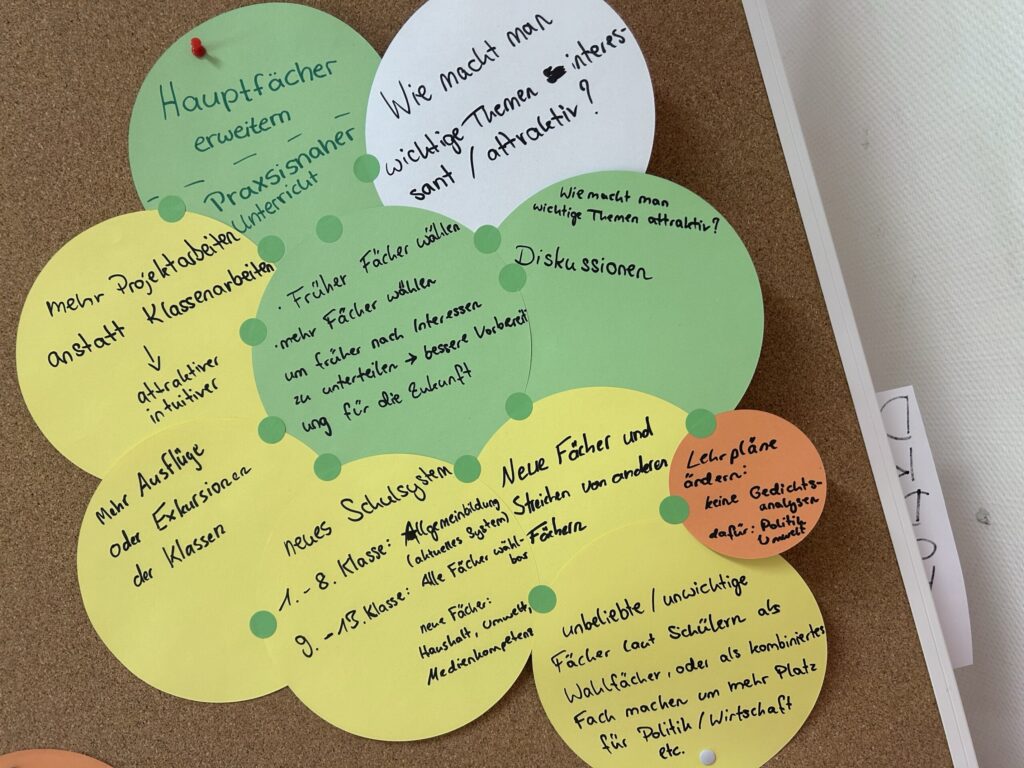 Hauptfächer
erweitern
Praxsisnaher
Unterricht
Wie macht man
wichtige Themen interes-
sant / attraktiv?
mehr Projektarbeiten
anstatt Klassenarbeiten
↓
attraktiver
intuitiver
· Früher Fächer wählen
· mehr Fächer wählen
um früher nach Interessen
zu unterteilen → bessere Vorbereit
ung für die Zukunft
Wie macht man
wichtige Themen attraktiv?
Diskussionen
Mehr Ausflüge
oder Exkursionen
der Klassen
neues Schulsystem
1. - 8. Klasse: Allgemeinbildung
(aktuelles System)
9. - 13. Klasse: Alle Fächer wähl-
bar
neue Fächer:
Haushalt, Umwelt,
Medienkompetenz
Neue Fächer und
Streichen von anderen
Fächern
Lehrpläne
ändern:
keine Gedichts-
analysen
dafür: Politik
Umwelt
unbeliebte / unwichtige
Fächer laut Schülern als
Wahlfächer, oder als kombiniertes
Fach machen um mehr Platz
für Politik / Wirtschaft
etc.